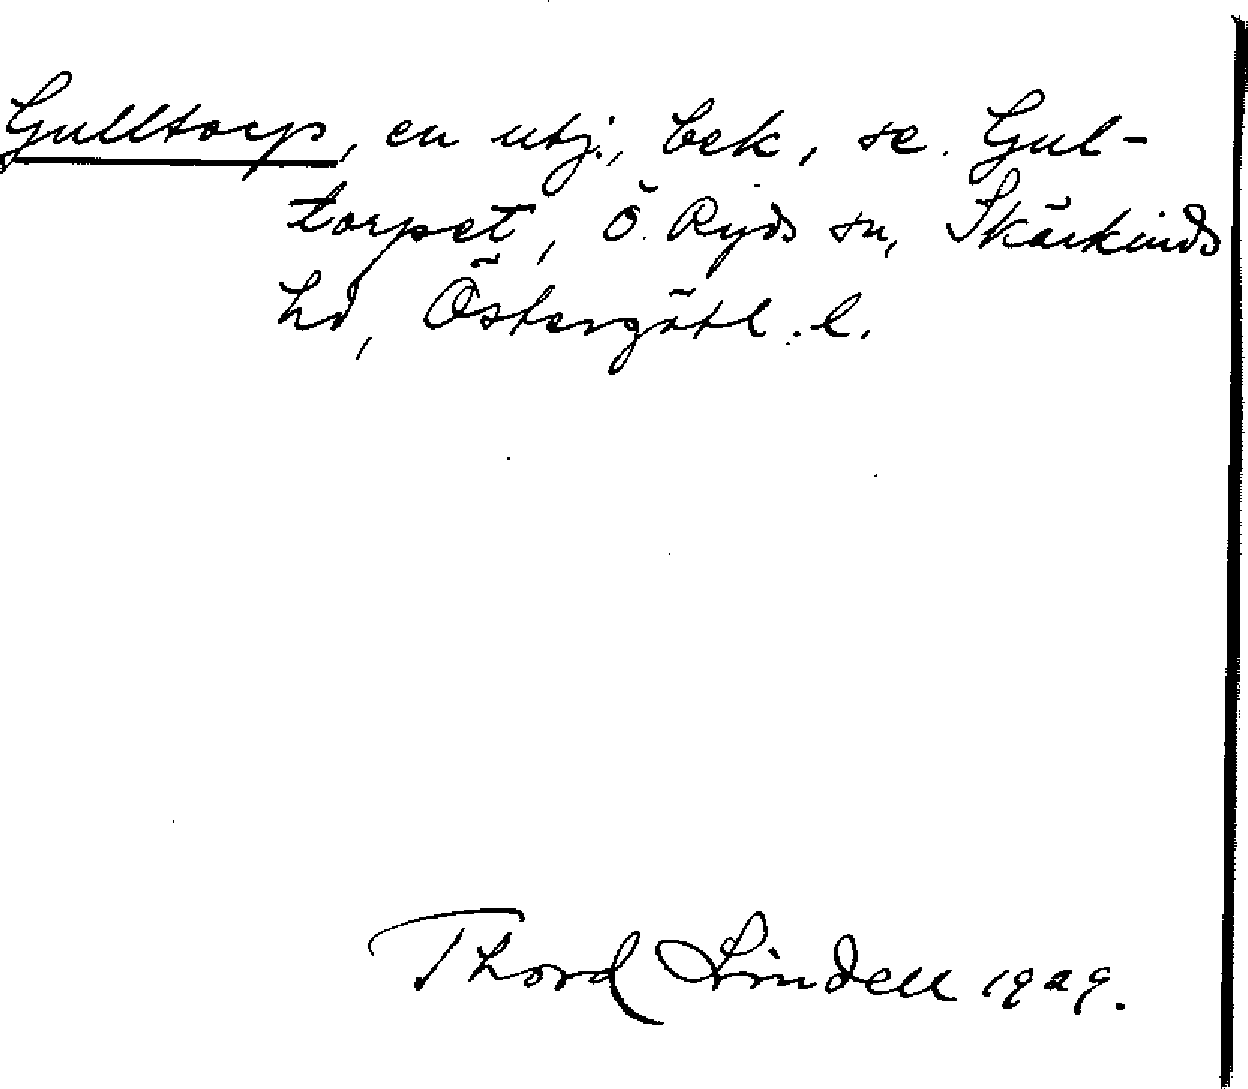 Gulltorp, en utj., bek, se. Gul-
torpet, Ö. Ryds sn, Skärkinds
hd, Östergötl. l.
Thord Lindell 1929.